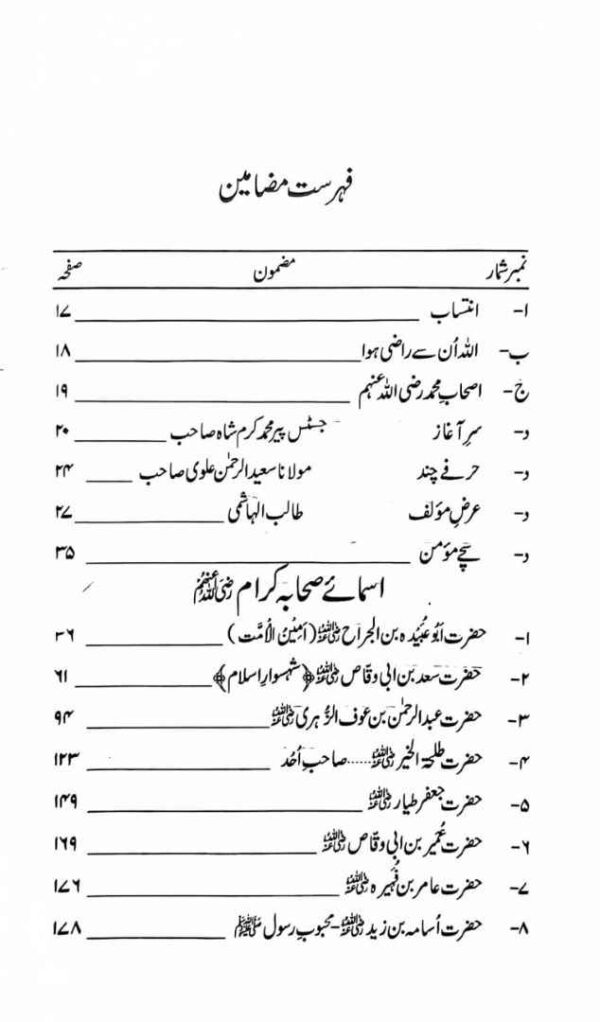 فہرست مضامین
نمبر شمار مضمون صفحہ
ا- انتساب ۱۷
ب- اللہ اُن سے راضی ہوا ۱۸
ج- اصحابِ محمد رضی اللہ عنہم ۱۹
د- سرِ آغاز جسٹس پیر محمد کرم شاہ صاحب ۲۰
د- حرفے چند مولانا سعید الرحمٰن علوی صاحب ۲۴
د- عرضِ مؤلف طالب الہاشمی ۲۷
د- سچے مؤمن ۳۵
اسمائے صحابہ کرام رضی اللہ عنہم
۱- حضرت ابو عُبَیدہ بن الجراح رضی اللہ عنہ (اَمِیْنُ الْاُمَّت) ۳۶
۲- حضرت سعد بن ابی وقاص رضی اللہ عنہ ﴿شہسوارِ اسلام﴾ ۶۱
۳- حضرت عبدالرحمٰن بن عوف الزُّہری رضی اللہ عنہ ۹۴
۴- حضرت طلحۃ الخیر رضی اللہ عنہ ...... صاحبِ اُحُد ۱۲۳
۵- حضرت جعفر طیار رضی اللہ عنہ ۱۴۹
۶- حضرت عُمیر بن ابی وقاص رضی اللہ عنہ ۱۶۹
۷- حضرت عامر بن فُہیرہ رضی اللہ عنہ ۱۷۶
۸- حضرت اُسامہ بن زید رضی اللہ عنہ - محبوبِ رسول ﷺ ۱۷۸